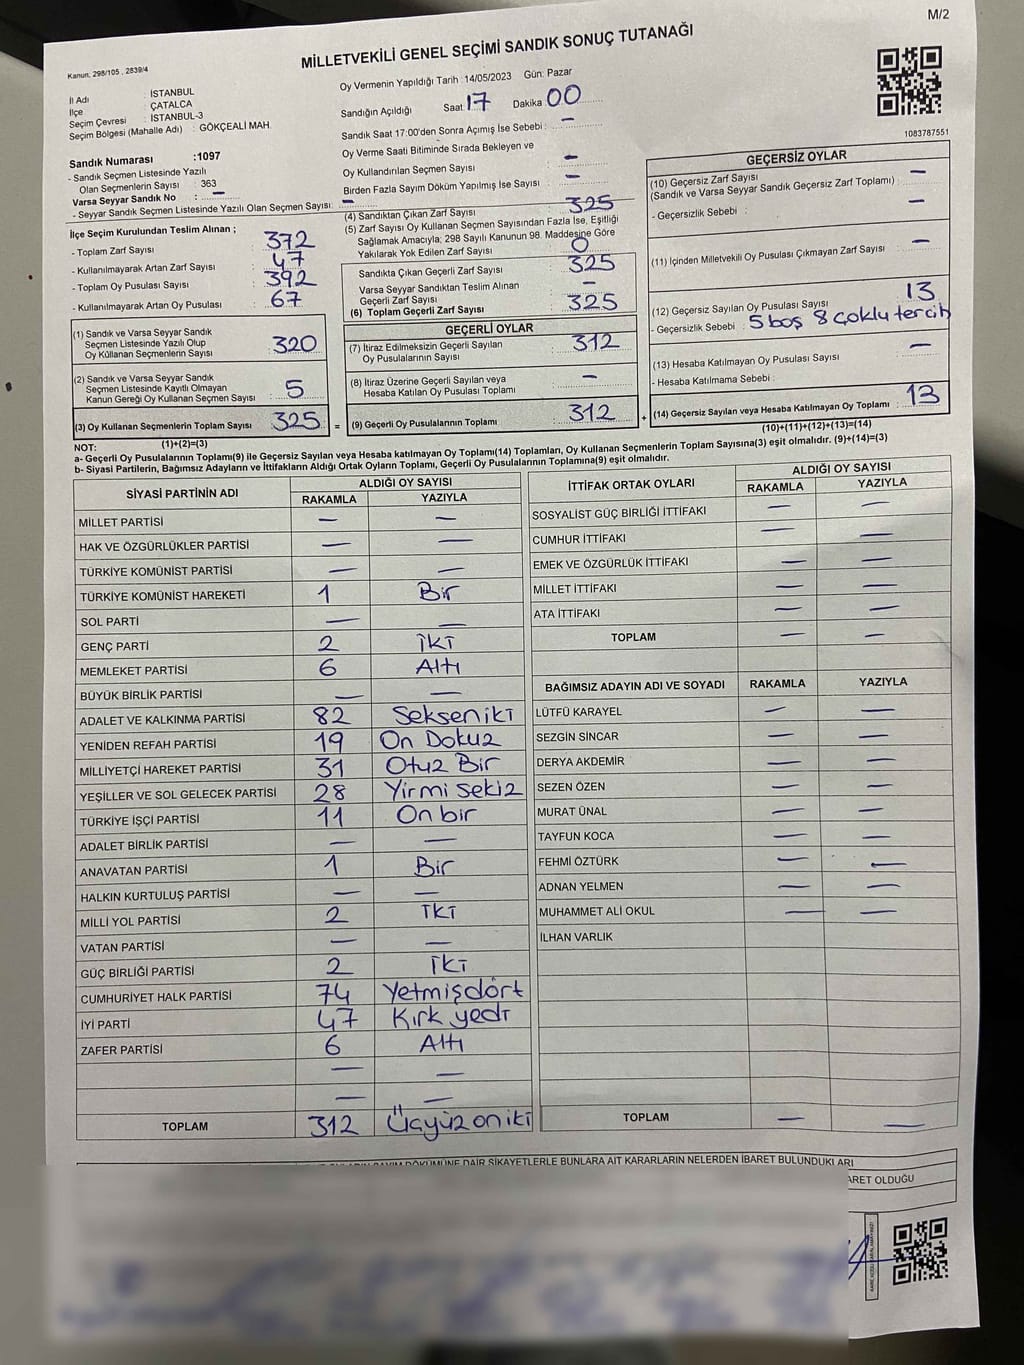 M/2
Kanun. 298/105 , 2839/4
MİLLETVEKİLİ GENEL SEÇİMİ SANDIK SONUÇ TUTANAĞI
İl Adı : İSTANBUL
İlçe : ÇATALCA
Seçim Çevresi : İSTANBUL-3
Seçim Bölgesi (Mahalle Adı) : GÖKÇEALİ MAH.
Oy Vermenin Yapıldığı Tarih :14/05/2023 Gün: Pazar
Sandığın Açıldığı Saat 17 Dakika 00
Sandık Saat 17:00'den Sonra Açımış İse Sebebi : —
Oy Verme Saati Bitiminde Sırada Bekleyen ve
Oy Kullandırılan Seçmen Sayısı —
Birden Fazla Sayım Döküm Yapılmış İse Sayısı —
1083787551
Sandık Numarası :1097
- Sandık Seçmen Listesinde Yazılı
Olan Seçmenlerin Sayısı : 363
Varsa Seyyar Sandık No : —
- Seyyar Sandık Seçmen Listesinde Yazılı Olan Seçmen Sayısı: —
İlçe Seçim Kurulundan Teslim Alınan ;
- Toplam Zarf Sayısı : 372
- Kullanılmayarak Artan Zarf Sayısı : 47
- Toplam Oy Pusulası Sayısı : 392
- Kullanılmayarak Artan Oy Pusulası : 67
(1) Sandık ve Varsa Seyyar Sandık
Seçmen Listesinde Yazılı Olup
Oy Kullanan Seçmenlerin Sayısı : 320
(2) Sandık ve Varsa Seyyar Sandık
Seçmen Listesinde Kayıtlı Olmayan
Kanun Gereği Oy Kullanan Seçmen Sayısı : 5
(3) Oy Kullanan Seçmenlerin Toplam Sayısı : 325 =
(1)+(2)=(3)
(4) Sandıktan Çıkan Zarf Sayısı 325
(5) Zarf Sayısı Oy Kullanan Seçmen Sayısından Fazla İse, Eşitliği
Sağlamak Amacıyla; 298 Sayılı Kanunun 98. Maddesine Göre
Yakılarak Yok Edilen Zarf Sayısı : 0
Sandıkta Çıkan Geçerli Zarf Sayısı : 325
Varsa Seyyar Sandıktan Teslim Alınan
Geçerli Zarf Sayısı : —
(6) Toplam Geçerli Zarf Sayısı : 325
GEÇERLİ OYLAR
(7) İtiraz Edilmeksizin Geçerli Sayılan
Oy Pusulalarının Sayısı : 312
(8) İtiraz Üzerine Geçerli Sayılan veya
Hesaba Katılan Oy Pusulası Toplamı : —
(9) Geçerli Oy Pusulalarının Toplamı : 312 +
GEÇERSİZ OYLAR
(10) Geçersiz Zarf Sayısı
(Sandık ve Varsa Seyyar Sandık Geçersiz Zarf Toplamı) : —
- Geçersizlik Sebebi : —
(11) İçinden Milletvekili Oy Pusulası Çıkmayan Zarf Sayısı : —
(12) Geçersiz Sayılan Oy Pusulası Sayısı : 13
- Geçersizlik Sebebi : 5 boş 8 çoklu tercih
(13) Hesaba Katılmayan Oy Pusulası Sayısı : —
- Hesaba Katılmama Sebebi :
(14) Geçersiz Sayılan veya Hesaba Katılmayan Oy Toplamı : 13
(10)+(11)+(12)+(13)=(14)
NOT:
a- Geçerli Oy Pusulalarının Toplamı(9) ile Geçersiz Sayılan veya Hesaba katılmayan Oy Toplamı(14) Toplamları, Oy Kullanan Seçmenlerin Toplam Sayısına(3) eşit olmalıdır. (9)+(14)=(3)
b- Siyasi Partilerin, Bağımsız Adayların ve İttifakların Aldığı Ortak Oyların Toplamı, Geçerli Oy Pusulalarının Toplamına(9) eşit olmalıdır.
SİYASİ PARTİNİN ADI ALDIĞI OY SAYISI
RAKAMLA YAZIYLA
MİLLET PARTİSİ — —
HAK VE ÖZGÜRLÜKLER PARTİSİ — —
TÜRKİYE KOMÜNİST PARTİSİ — —
TÜRKİYE KOMÜNİST HAREKETİ 1 Bir
SOL PARTİ — —
GENÇ PARTİ 2 İki
MEMLEKET PARTİSİ 6 Altı
BÜYÜK BİRLİK PARTİSİ — —
ADALET VE KALKINMA PARTİSİ 82 Seksen iki
YENİDEN REFAH PARTİSİ 19 On Dokuz
MİLLİYETÇİ HAREKET PARTİSİ 31 Otuz Bir
YEŞİLLER VE SOL GELECEK PARTİSİ 28 Yirmi sekiz
TÜRKİYE İŞÇİ PARTİSİ 11 On bir
ADALET BİRLİK PARTİSİ — —
ANAVATAN PARTİSİ 1 Bir
HALKIN KURTULUŞ PARTİSİ — —
MİLLİ YOL PARTİSİ 2 İki
VATAN PARTİSİ — —
GÜÇ BİRLİĞİ PARTİSİ 2 İki
CUMHURİYET HALK PARTİSİ 74 Yetmişdört
İYİ PARTİ 47 Kırk yedi
ZAFER PARTİSİ 6 Altı
— —
— —
TOPLAM 312 Üçyüz on iki
İTTİFAK ORTAK OYLARI ALDIĞI OY SAYISI
RAKAMLA YAZIYLA
SOSYALİST GÜÇ BİRLİĞİ İTTİFAKI — —
CUMHUR İTTİFAKI — —
EMEK VE ÖZGÜRLÜK İTTİFAKI — —
MİLLET İTTİFAKI — —
ATA İTTİFAKI — —
TOPLAM — —
BAĞIMSIZ ADAYIN ADI VE SOYADI RAKAMLA YAZIYLA
LÜTFÜ KARAYEL — —
SEZGİN SİNCAR — —
DERYA AKDEMİR — —
SEZEN ÖZEN — —
MURAT ÜNAL — —
TAYFUN KOCA — —
FEHMİ ÖZTÜRK — —
ADNAN YELMEN — —
MUHAMMET ALİ OKUL — —
İLHAN VARLIK
TOPLAM — —
DÖKÜMÜNE DAİR ŞİKAYETLERLE BUNLARA AİT KARARLARIN NELERDEN İBARET BULUNDUKLARI
ARET OLDUĞU